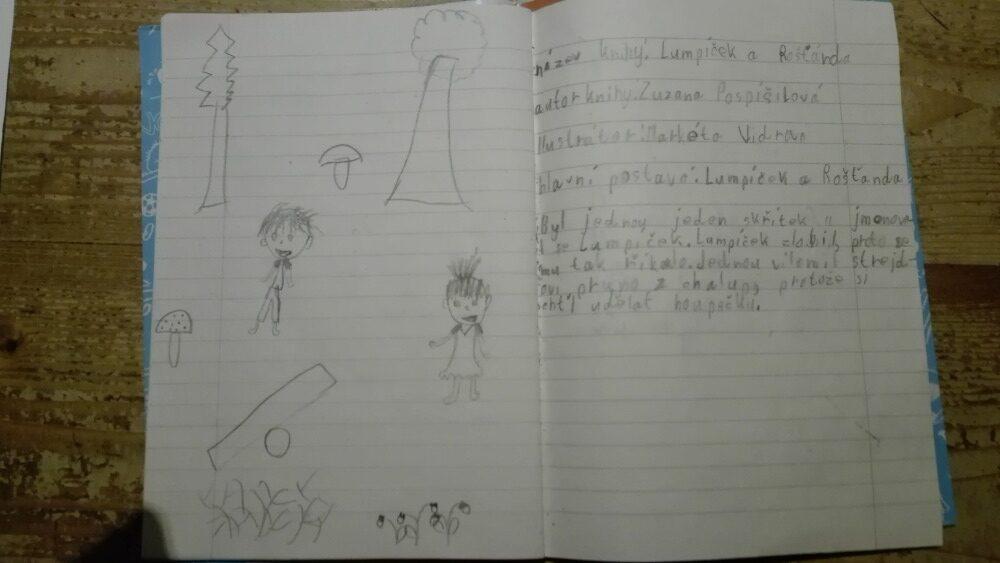 název knihy: Lumpíček a Rošťanda
autor knihy: Zuzana Pospíšilová
Ilustrátor: Markéta Vidran
hlavní postavy: Lumpíček a Rošťanda
Byl jednou jeden skřítek jmenova
l se Lumpíček. Lumpíček zlobil, proto se
mu tak říkalo. Jednou strejd-
ovi prkno z chalupy, protože si
chtěl udělat houpačku.